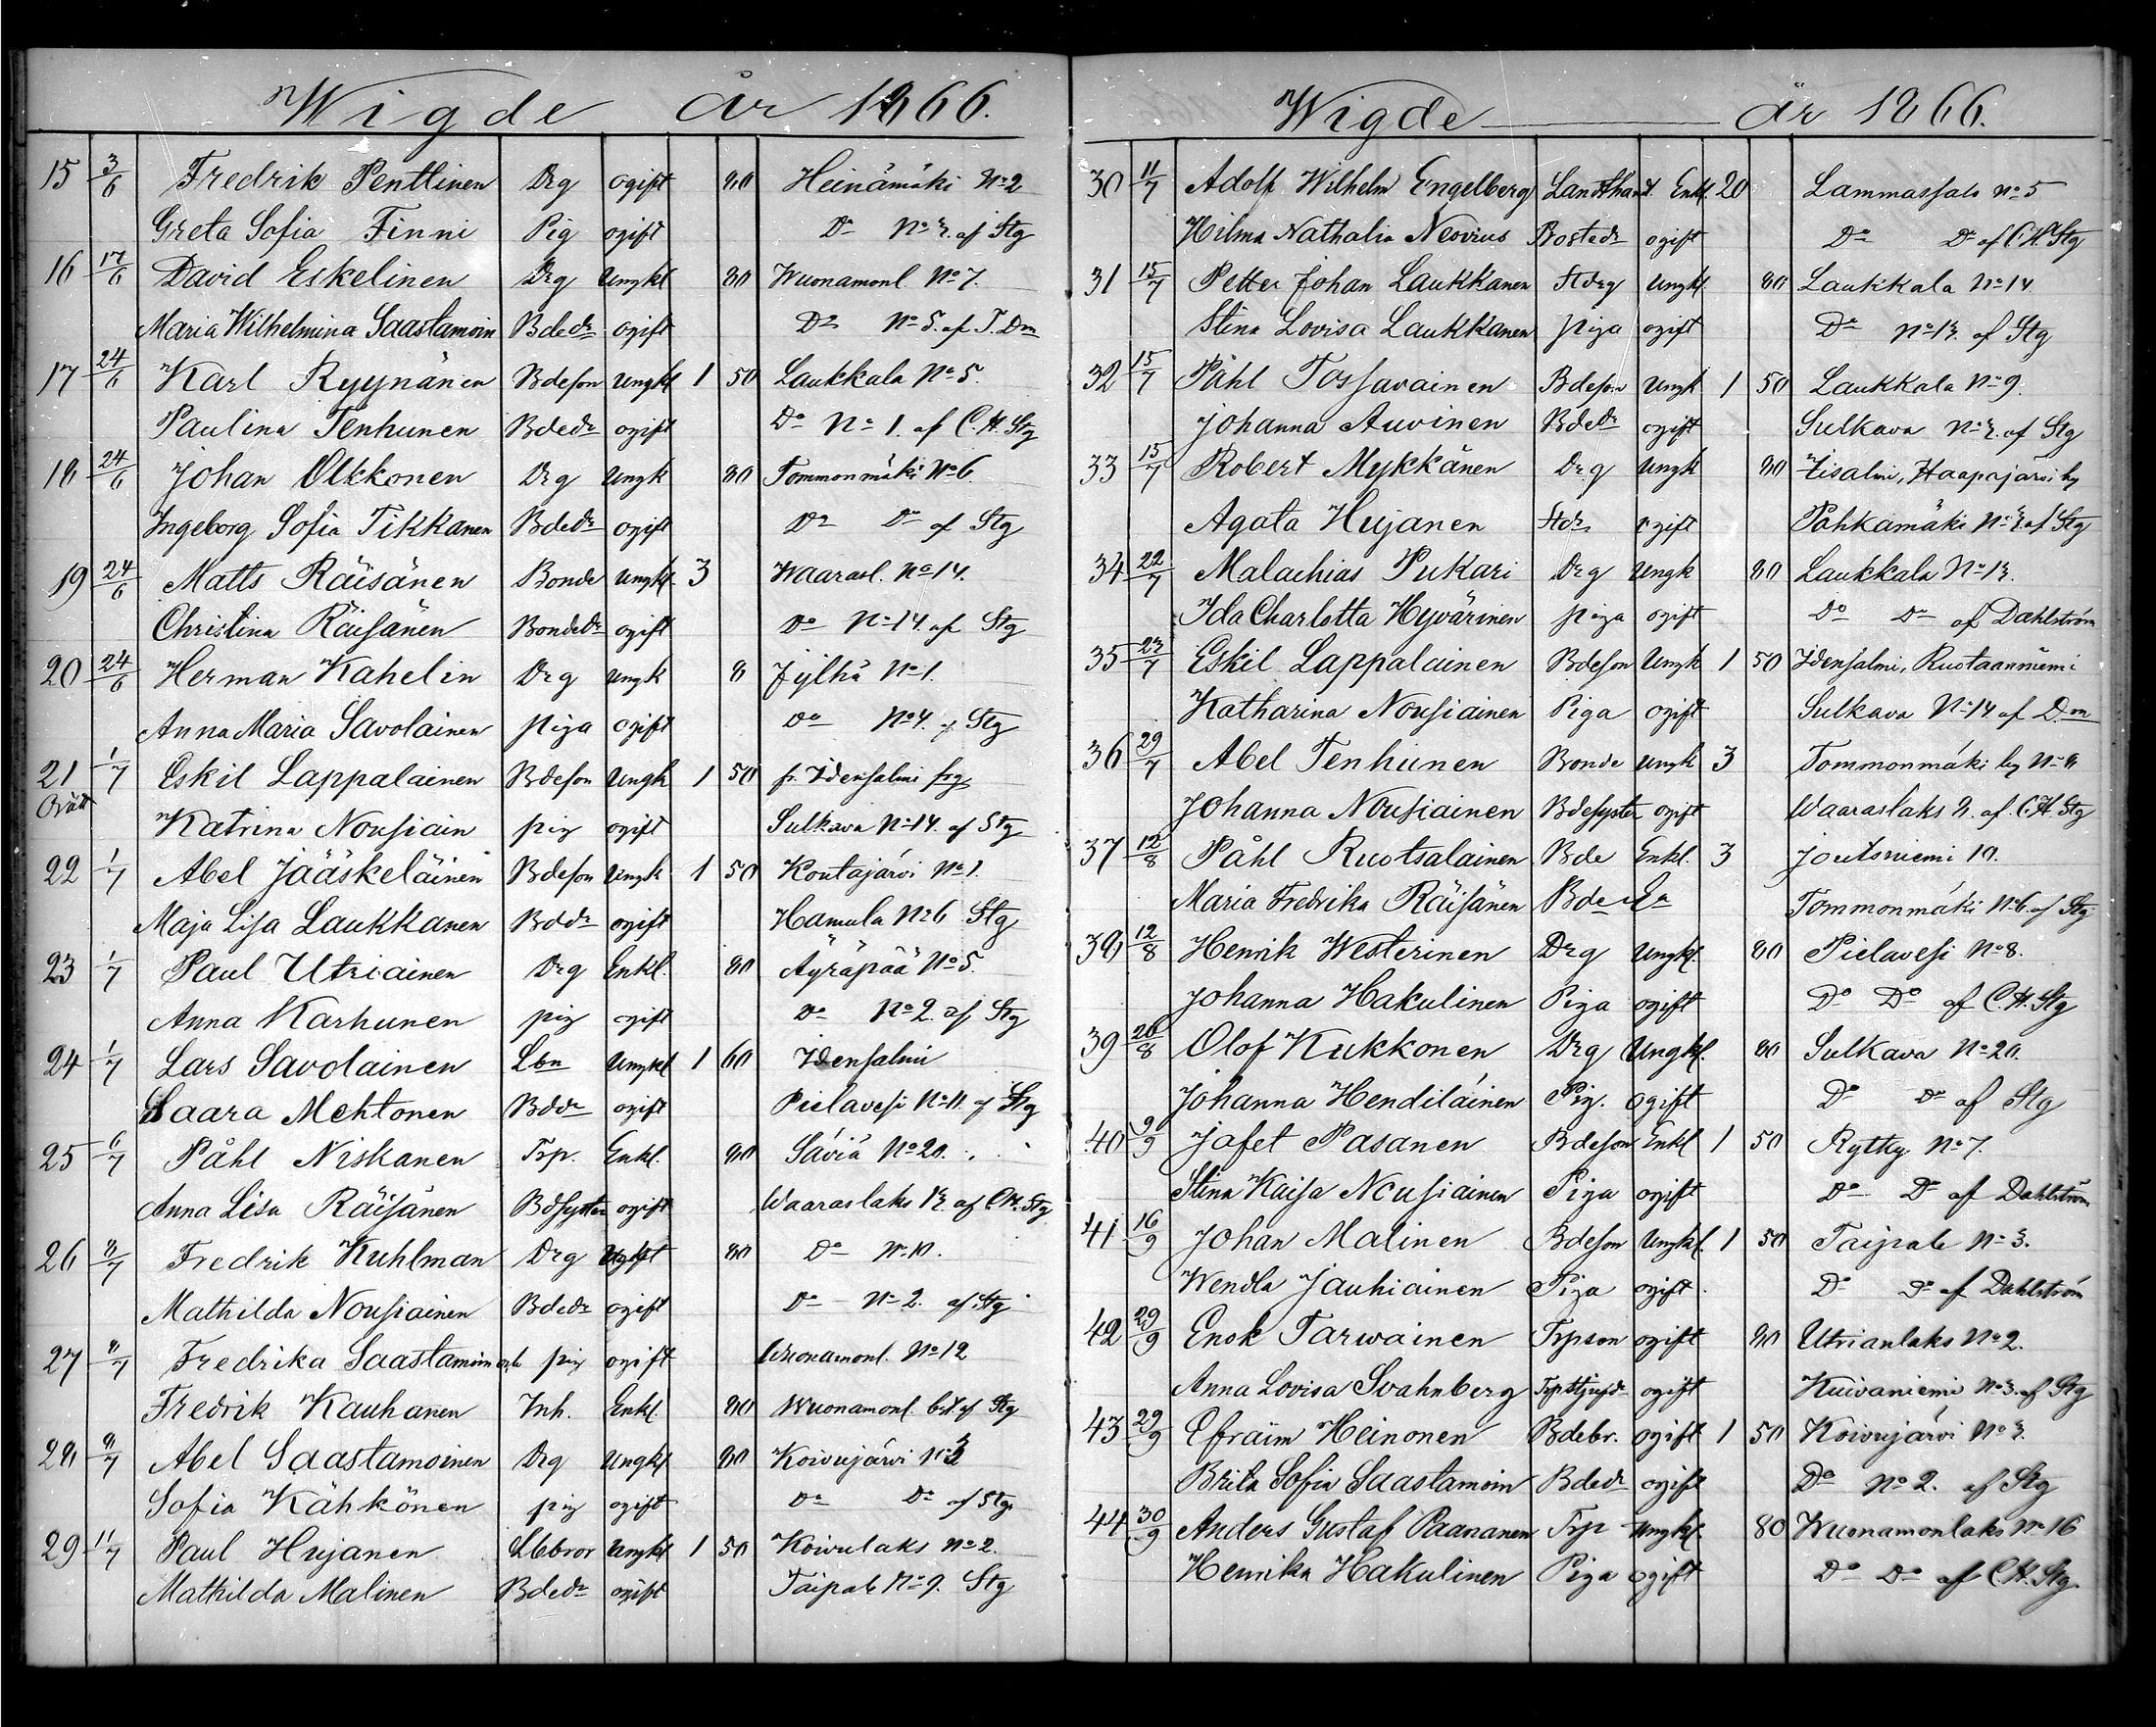 Wigde år 1866.
15 3/6 Fredrik Penttinen Drg ogift 80 Heinämäki No 2
Greta Sofia Finni Pig ogift Do No 3. af Stg
16 17/6 David Eskelinen Drg Ungkl 80 Wuonamonl No 7.
Maria Wilhelmina Saastamoin Bdedr ogift Do No 5. af T. Dm
17 24/6 Karl Ryynänen Bdeson Ungkl 1 50 Laukkala No 5.
Paulina Tenhunen Bdedr ogift Do No 1. af C. H. Stg
18 24/6 Johan Olkkonen Drg Ungk 80 Tommonmäki No 6.
Ingeborg Sofia Tikkanen Bdedr ogift Do Do af Stg
19 24/6 Matts Räisänen Bonde Ungkl. 3 Waarasl. No 14.
Christina Räisänen Bondedr ogift Do No 14. af Stg
20 24/6 Herman Kahelin Drg Ungk 8 Jylhä No 1.
Anna Maria Savolainen piga ogift Do No 4. af Stg
21 1/7 Eskil Lappalainen Bdeson Ungk 1 50 fr. Idensalmi
Katrina Nousiain pig ogift Sulkava No 14. af Stg
22 1/7 Abel Jääskeläinen Bdeson Ungk 1 50 Koutajärvi No 1.
Maja Lisa Laukkanen Bddr ogift Hamula No 6 Stg
23 1/7 Paul Utriainen Drg Enkl. 80 Äyräpää No 5.
Anna Karhunen pig ogift Do No 2. af Stg
24 1/7 Lars Savolainen Lbn Ungkl 1 60 Idensalmi
Saara Mehtonen Bddr ogift Pielavesi No 11. af Stg
25 6/7 Påhl Niskanen Trp. Enkl. 80 Säviä No 20.
Anna Lisa Räisänen Bdsyster ogift Waaraslaks 13. af C. H. Stg
26 8/7 Fredrik Kuhlman Drg 80 Do No 10.
Mathilda Nousiainen Bdedr ogift Do No 2. af Stg
27 8/7 Fredrika Saastamoin och pig ogift Wuonamonl. No 12
Fredrik Kauhanen Inh. Enkl. 80 Wuonamonl. af Stg
28 8/7 Abel Saastamoinen Drg Ungkl 80 Koivujärvi No 3
Sofia Kähkönen pig ogift Do Do af Stg
29 11/7 Paul Hujanen Ungkl 1 50 Koivulaks No 2.
Mathilda Malinen Bdedr ogift Taipale No 9. Stg
Wigde år 1866.
30 11/7 Adolf Wilhelm Engelberg Landthand. Enkl. 20 Lammassalo No 5
Hilma Nathalia Neovius Bostedr ogift Do Do af C. H. Stg
31 15/7 Petter Johan Laukkanen Stdrg Ungkl. 80 Laukkala No 14
Stina Lovisa Laukkanen piga ogift Do No 13. af Stg
32 15/7 Påhl Tossavainen Bdeson Ungk 1 50 Laukkala No 9.
Johanna Auvinen Bdedr ogift Sulkava No 3. af Stg
33 15/7 Robert Mykkänen Drg Ungk 80 Iisalmi, Haapajärvi by
Agata Hujanen Stdr ogift Påhkamäki No 3. af Stg
34 22/7 Malachias Pukari Drg Ungk 80 Laukkala No 13.
Ida Charlotta Hyvärinen piga ogift Do Do af Dahlström
35 23/7 Eskil Lappalainen Bdeson Ungk 1 50 Idensalmi, Ruotaanniemi
Katharina Nousiainen Piga ogift Sulkava No 14 af D.m
36 29/7 Abel Tenhunen Bonde Ungk 3 Tommonmäki by No 8
Johanna Nousiainen Bdesyster ogift Waaraslaks 2. af C. H. Stg
37 12/8 Påhl Ruotsalainen Bde Enkl. 3 Joutsniemi 10.
Maria Fredrika Räisänen Bde Tommonmäki No 6. af Stg
38 12/8 Henrik Westerinen Drg Ungkl. 80 Pielavesi No 8.
Johanna Hakulinen Piga ogift Do Do af C. H. Stg
39 26/8 Olof Kukkonen Drg Ungkl. 80 Sulkava No 20.
Johanna Hendiläinen Pig. ogift Do Do af Stg
40 9/9 Jafet Pasanen Bdeson Enkl 1 50 Rytky No 7.
Stina Kaisa Nousiainen Piga ogift Do Do af Dahlström
41 16/9 Johan Malinen Bdeson Ungkl. 1 50 Taipale No 3.
Wendla Jauhiainen Piga ogift Do Do af Dahlström
42 29/9 Enok Tarwainen Trpson ogift 80 Utrianlaks No 2.
Anna Lovisa Svahnberg Trpstjufdr ogift Kuivaniemi No 3. af Stg
43 29/9 Efraim Heinonen Bdebr. ogift 1 50 Koivujärvi No 3.
Brita Sofia Saastamoin Bdedr ogift Do No 2. af Stg
44 30/9 Anders Gustaf Paananen Trp Ungkl. 80 Wuonamonlaks No 16
Henrika Hakulinen Piga ogift Do Do af C. H. Stg.